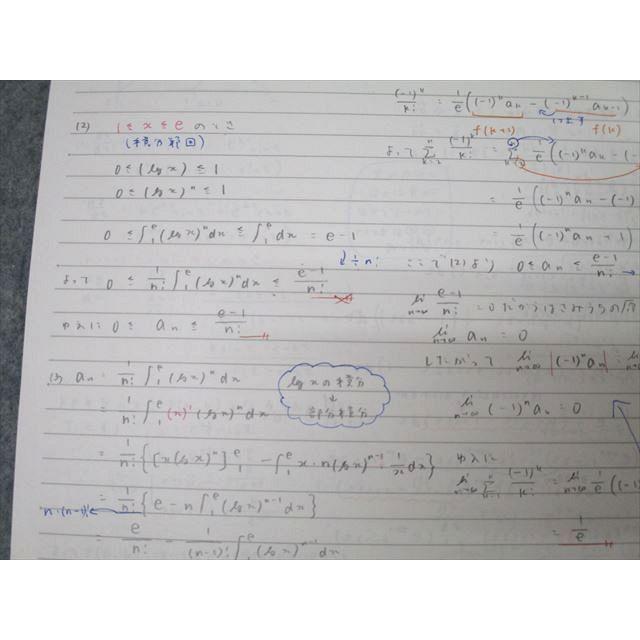 (2) 1 ≦ x ≦ e のとき
(積分範囲)
0 ≦ (log x) ≦ 1
0 ≦ (log x)^n ≦ 1
0 ≦ ∫_1^e (log x)^n dx ≦ ∫_1^e dx = e-1
↓ ÷ n!
よって 0 ≦ 1/n! ∫_1^e (log x)^n dx ≦ (e-1)/n!
ゆえに 0 ≦ a_n ≦ (e-1)/n!
(3) a_n = 1/n! ∫_1^e (log x)^n dx
log x の積分
↓
部分積分
= 1/n! ∫_1^e (x)'(log x)^n dx
= 1/n! {[x(log x)^n]_1^e - ∫_1^e x・n(log x)^{n-1}・1/x dx}
= 1/n! {e - n∫_1^e (log x)^{n-1} dx}
n・(n-1)! ←
= e/n! - 1/(n-1)! ∫_1^e (log x)^{n-1} dx
(-1)^k/k! = 1/e ((-1)^k a_k - (-1)^{k-1} a_{k-1})
f(k+1) f(k)
よって Σ_{k=2}^n (-1)^k/k! = Σ_{k=2}^n 1/e ((-1)^k a_k - (-
= 1/e ((-1)^n a_n - (-1)
= 1/e ((-1)^n a_n + 1)
ここで (2)より 0 ≦ a_n ≦ (e-1)/n! →
lim_{n→∞} (e-1)/n! = 0 だからはさみうちの原
lim_{n→∞} a_n = 0
したがって lim_{n→∞} |(-1)^n a_n| = lim_{n→∞}
lim_{n→∞} (-1)^n a_n = 0
ゆえに
lim_{n→∞} Σ (-1)^k/k! = lim_{n→∞} 1/e ((-1)
= 1/e